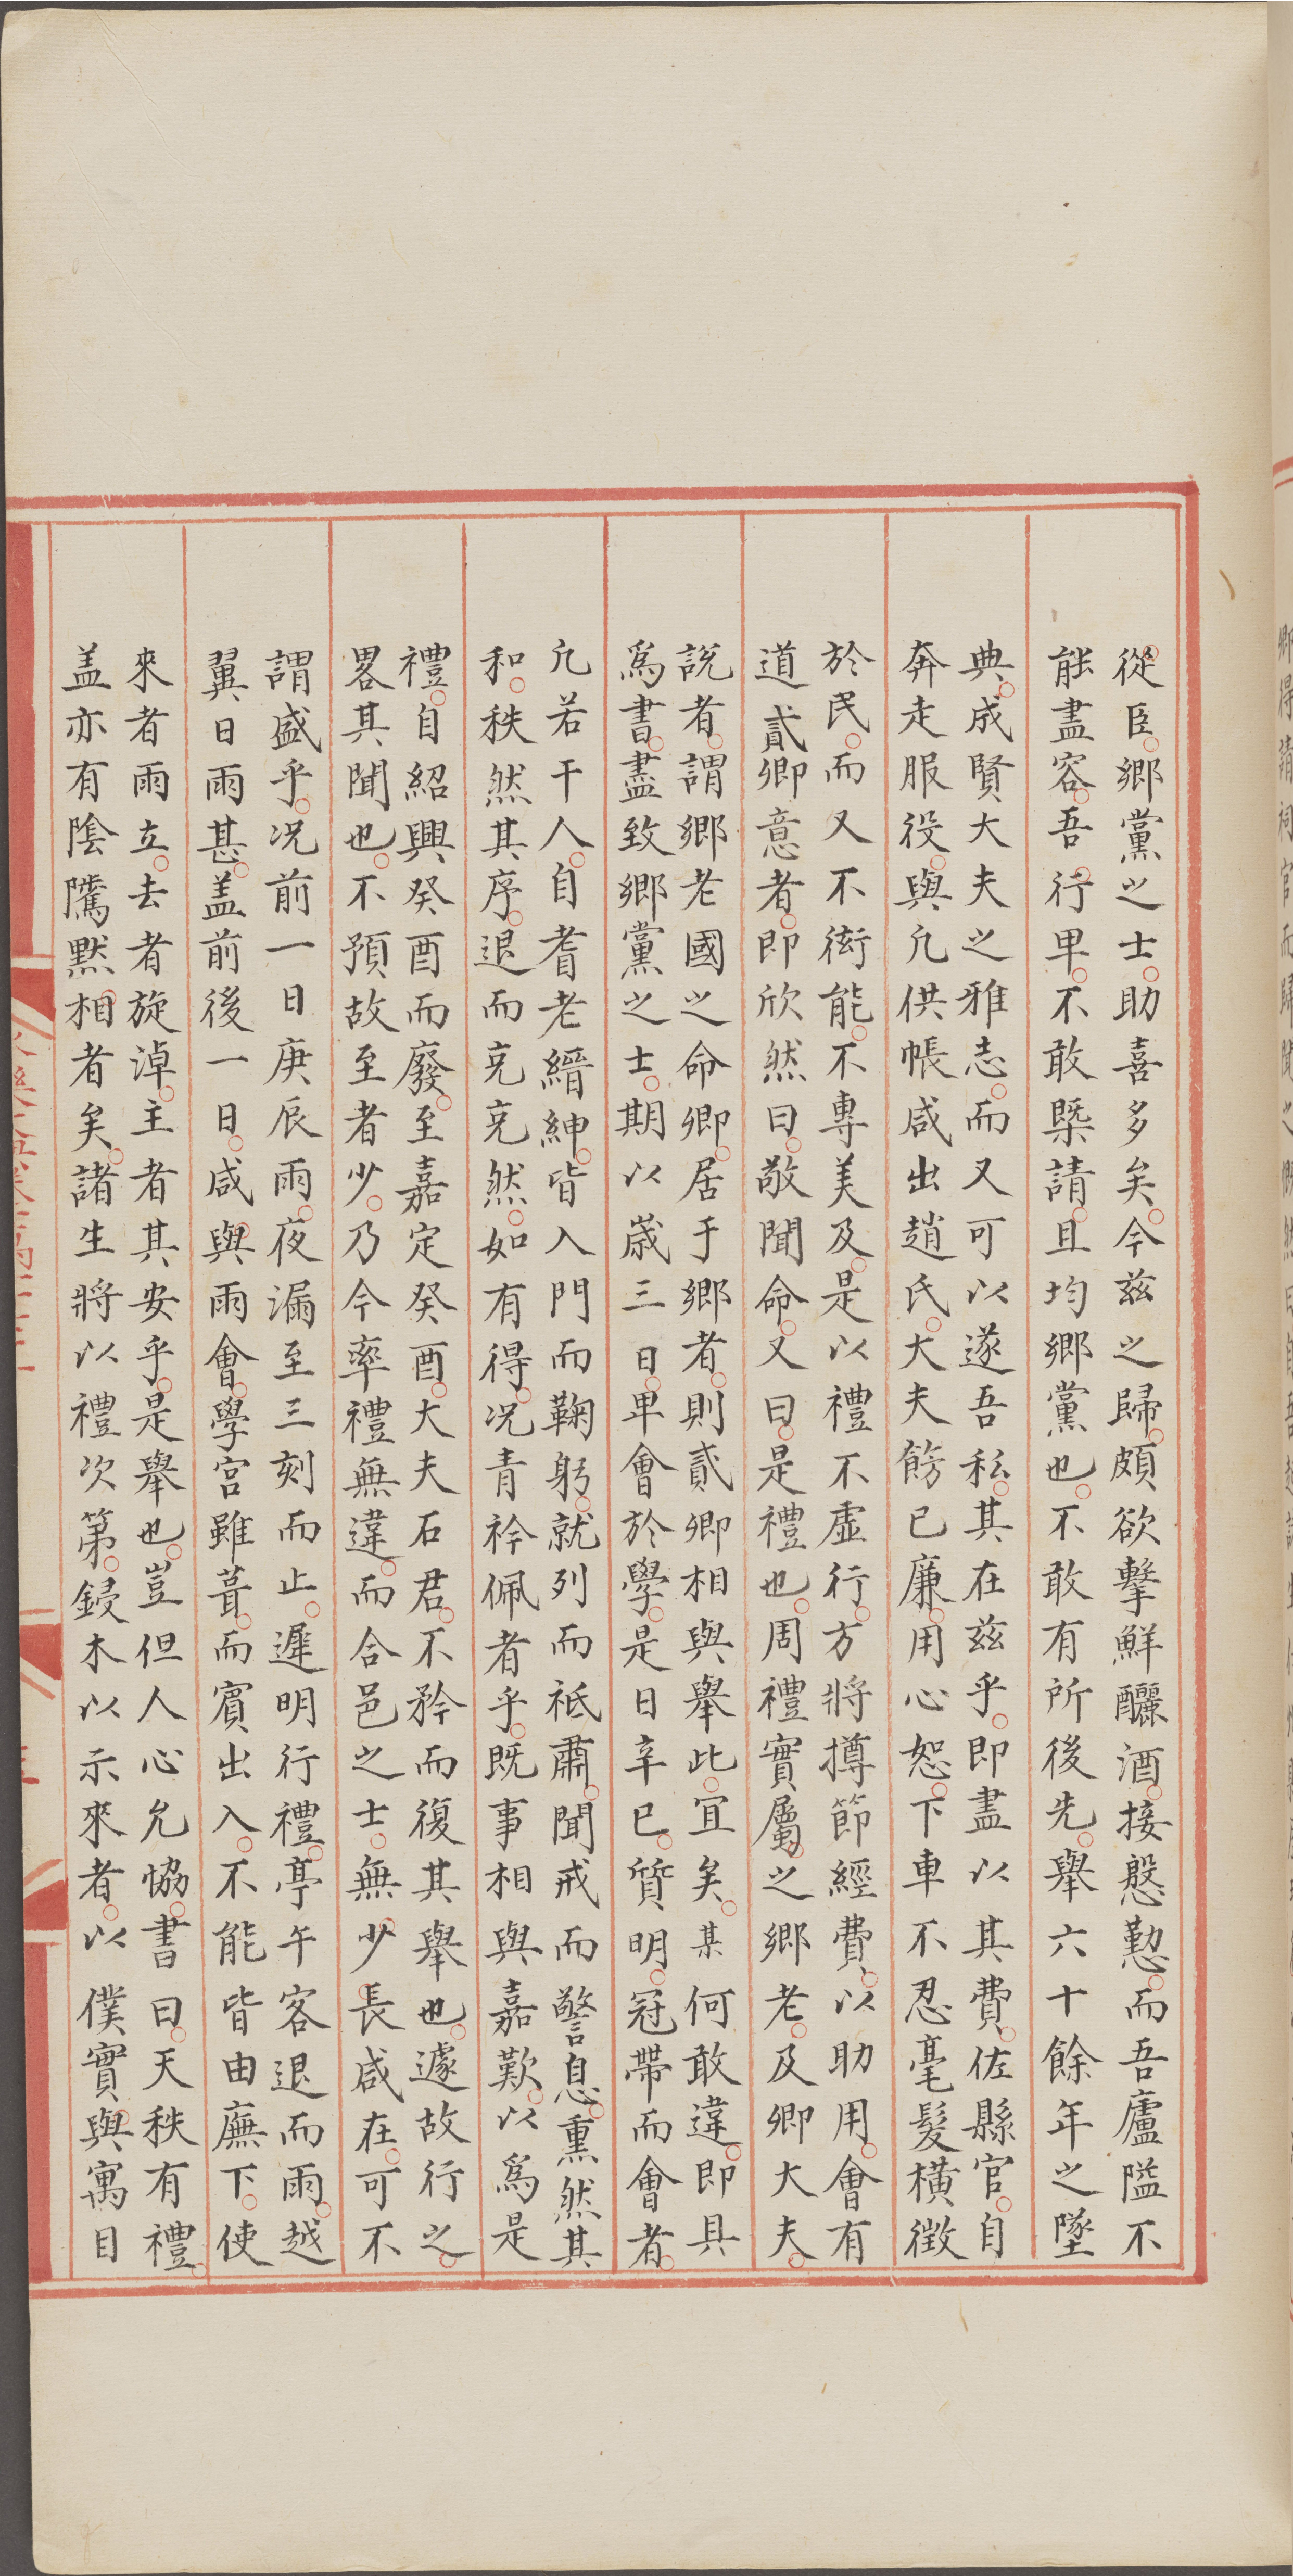 從臣鄉黨之士助喜多矣今茲之歸頗欲擊鮮釃酒接慇懃而吾廬隘不
能盡容吾行卑不敢槩請且均鄉黨也不敢有所後先舉六十餘年之墜
典成賢大夫之雅志而又可以遂吾私其在茲乎即盡以其費佐縣官自
奔走服役與凢供帳咸出趙氏大夫餝已廉用心恕下車不忍毫髮橫徵
於民而又不衒能不專美及是以禮不虛行方將撙節經費以助用會有
道貳卿意者即欣然曰敬聞命又曰是禮也周禮實屬之鄉老及卿大夫
說者謂鄉老國之命卿居于鄉者則貳卿相與舉此宜矣某何敢違即具
爲書盡致鄉黨之士期以歲三日卑會於學是日辛巳質明冠帶而會者
凢若干人自耆老縉紳皆入門而鞠躬就列而祗肅聞戒而警息熏然其
和秩然其序退而兗兗然如有得况青衿佩者乎既事相與嘉歎以爲是
禮自紹興癸酉而廢至嘉定癸酉大夫石君不矜而復其舉也遽故行之
畧其聞也不預故至者少乃今率禮無違而合邑之士無少長咸在可不
謂盛乎况前一日庚辰雨夜漏至三刻而止遲明行禮亭午客退而雨越
翼日雨甚盖前後一日咸與雨會學宮雖葺而賓出入不能皆由廡下使
來者雨立去者旋淖主者其安乎是舉也豈但人心允協書曰天秩有禮
盖亦有陰隲默相者矣諸生將以禮次第鋟木以示來者以僕實與寓目